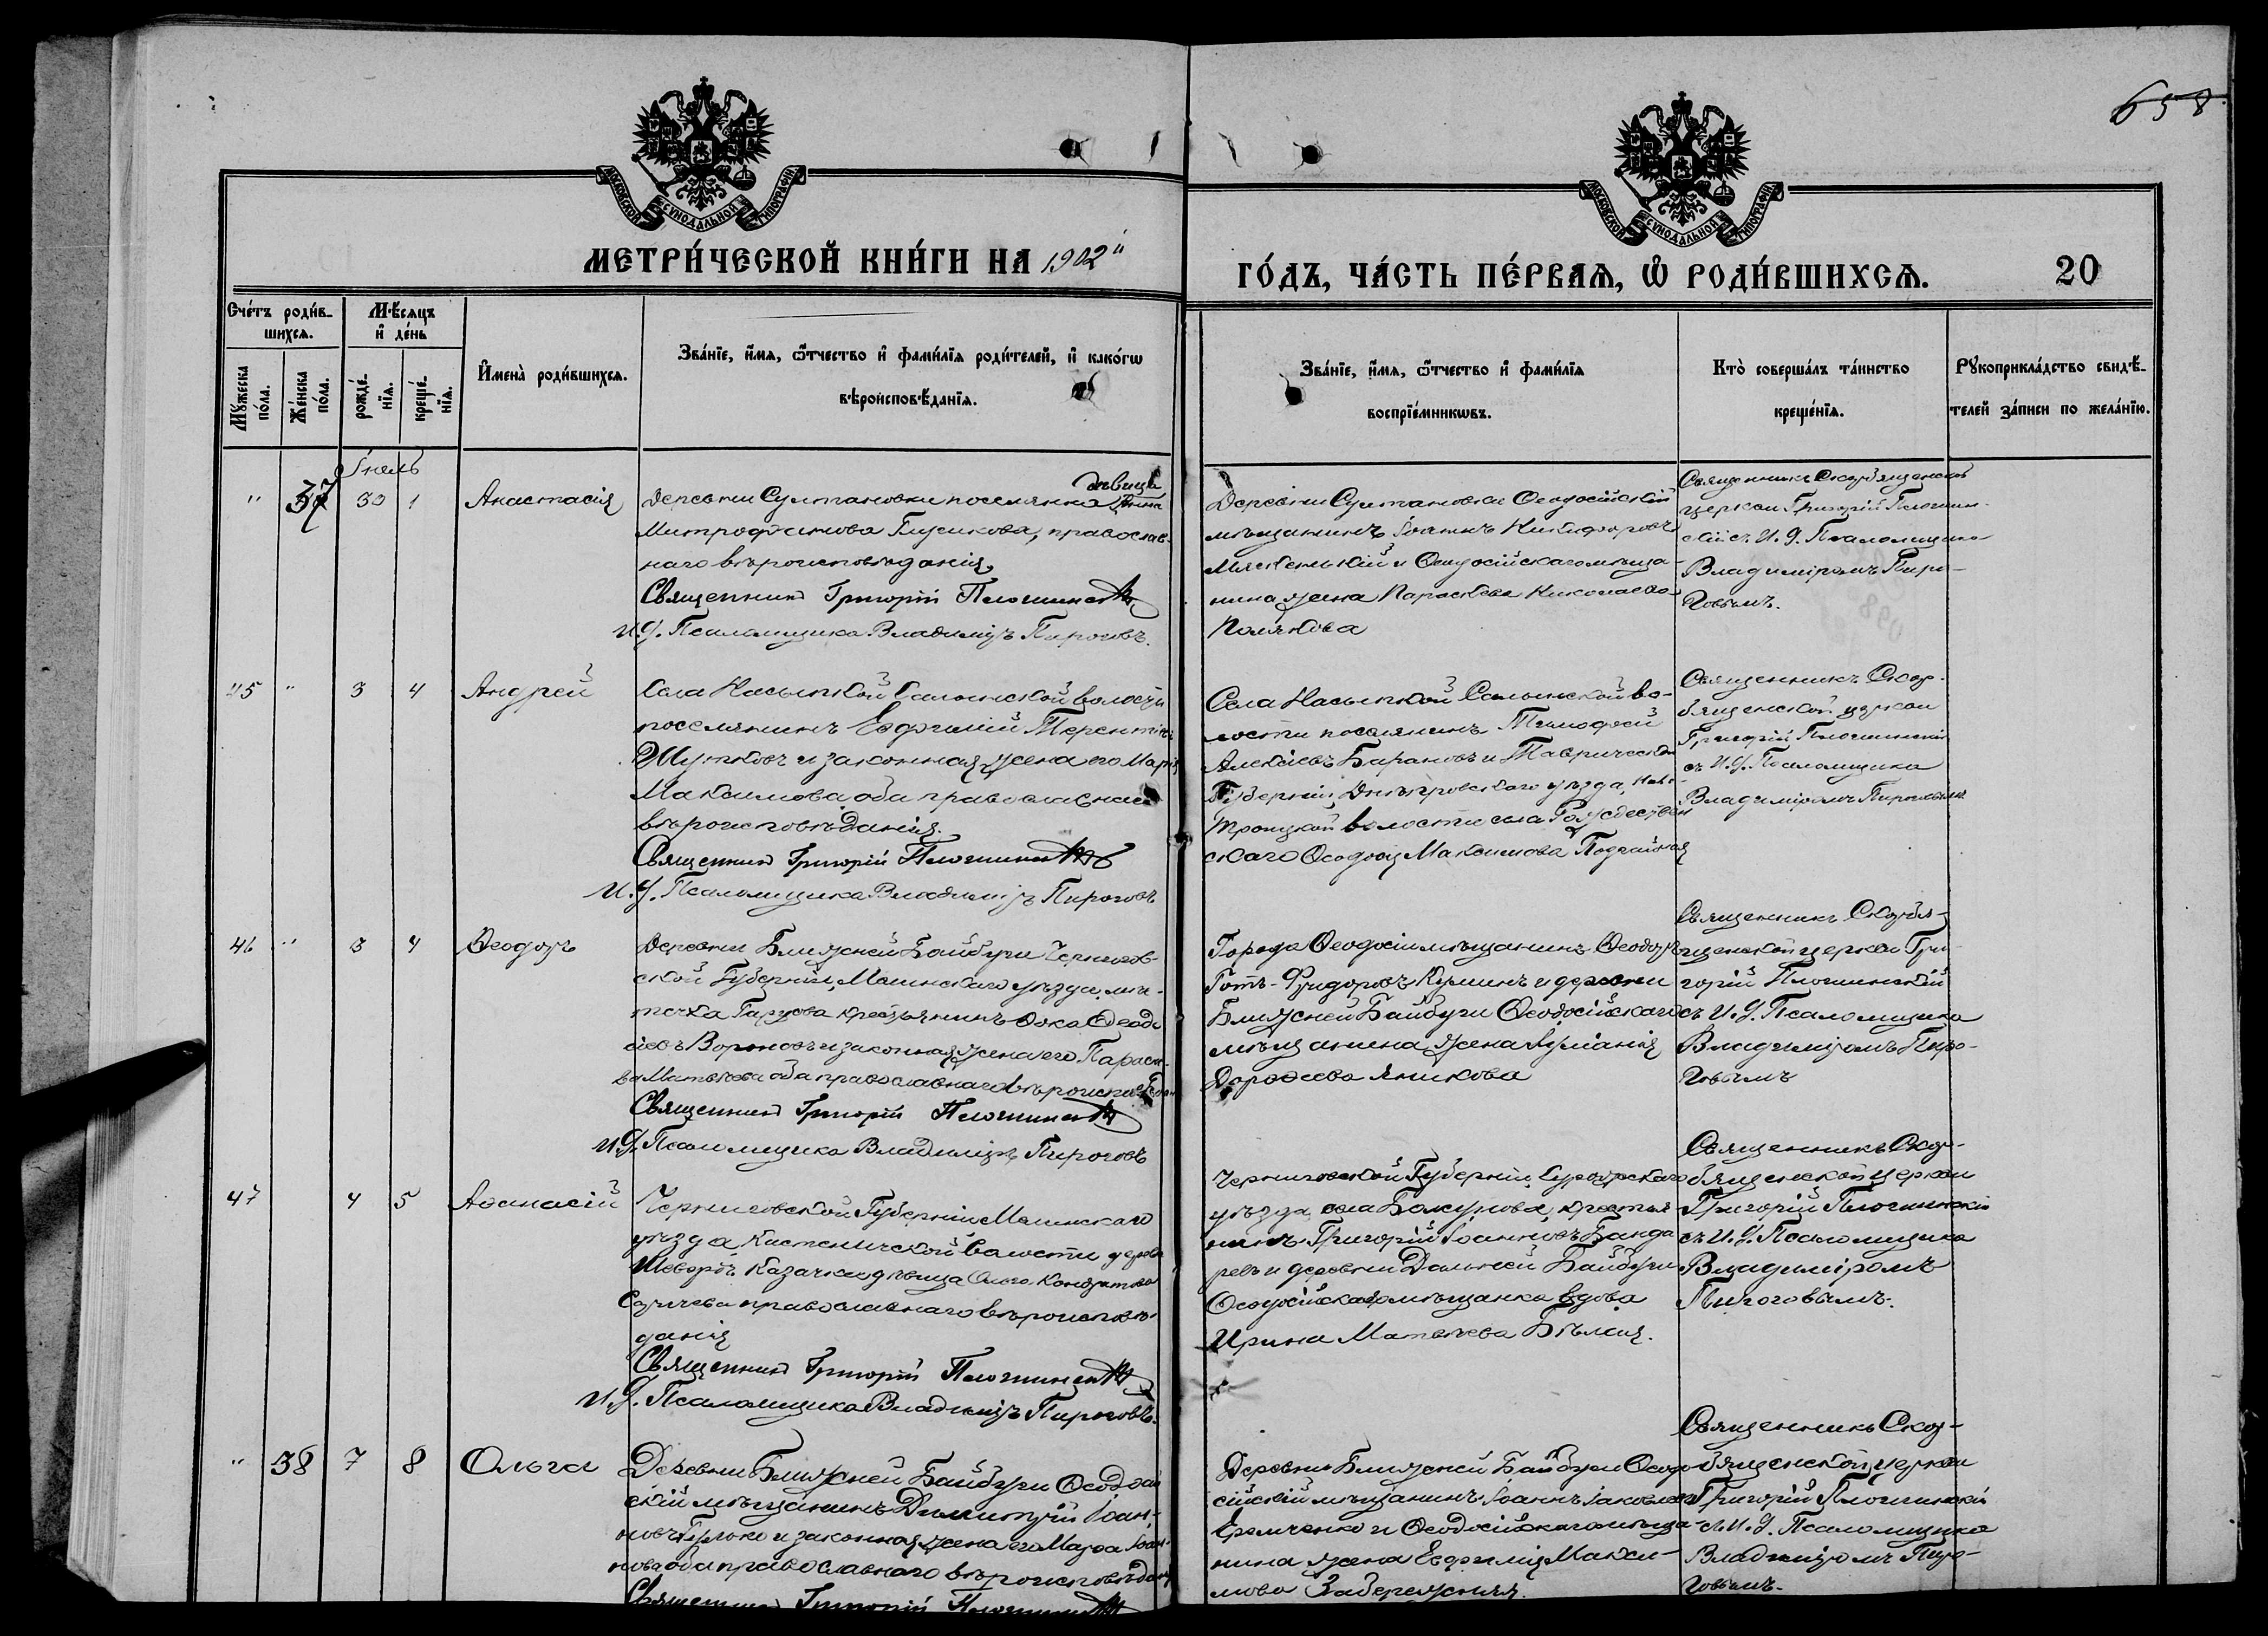 658
МОСКОВСКОЙ СѴНОДАЛЬНОЙ ТИПОГРАФІИ
МОСКОВСКОЙ СѴНОДАЛЬНОЙ ТИПОГРАФІИ
МЕТРИ́ЧЕСКОЙ КНИ́ГИ НА 1902"
ГО́ДЪ, ЧА́СТЬ ПЕ́РВАѦ, Ѡ҆ РОДИ́ВШИХСѦ.
20
Сче́тъ роди́в-
шихсѧ.
Мꙋ́жеска
по́ла.
Же́нска
по́ла.
Мѣ́сѧцъ
и҆ де́нь
рожде́-
нїѧ.
креще́-
нїѧ.
И҆мена̀ роди́вшихсѧ.
Зва́нїе, и҆́мѧ, ѻ҆́тчество и҆ фами́лїѧ роди́телей, и҆ како́гѡ
вѣроисповѣ́данїѧ.
Зва́нїе, и҆́мѧ, ѻ҆́тчество и҆ фами́лїѧ
воспрїе́мникѡвъ.
Кто̀ соверша́лъ та́инство
креще́нїѧ.
Рꙋкоприкла́дство свидѣ́-
телей за́писи по жела́нїю.
" 37 30 1 Анастасія
дѣвица
Деревни Султановки поселянка Анна
Митрофанова Глушкова, православ-
наго вѣроисповѣданія.
Священникъ Григорій
И.д. Псаломщика Владиміръ Пироговъ.
Деревни Султановки Ѳеодосійскій
мѣщанинъ Іоаннъ Никифоровъ
и Ѳеодосійскаго мѣща-
нина жена Параскева Николаева
Полякова
Священникъ Скорбященской
церкви Григорій
съ И. д. Псаломщика
Владиміромъ Пиро-
говымъ.
45 " 3 4 Андрей
Села Насыпкой Салынской волости
поселянинъ Евфимій Терентіевъ
и законная жена его Марія
Максимова оба православнаго
вѣроисповѣданія.
Священникъ Григорій
И.д. Псаломщика Владиміръ Пироговъ
Села Насыпкой Салынской во-
лости поселянинъ Тимофей
Алексіевъ Барановъ и Таврической
Губерніи, Днѣпровскаго уѣзда, Ново-
троицкой волости села Рождествен
скаго Ѳеодосія Максимова
Священникъ Скор-
бященской церкви
Григорій
съ И. д. Псаломщика
Владиміромъ Пироговымъ
46 " 3 4 Ѳеодоръ
Деревни Ближней Байбуги Чернигов-
ской Губерніи, Мглинскаго уѣзда, мѣ-
стечка крестьянинъ Ѳока Ѳеодо
сіевъ Вороновъ и законная жена его Параске-
ва Матвѣева оба православнаго вѣроисповѣдан
Священникъ Григорій
И.д. Псаломщика Владиміръ Пироговъ
Города Ѳеодосіи мѣщанинъ Ѳеодоръ
и деревни
Ближней Байбуги Ѳеодосійскаго
мѣщанина жена
Дороѳеева Яникова
Священникъ Скорбя-
щенской церкви Гри-
горій
съ И. д. Псаломщика
Владиміромъ Пиро-
говымъ
47 4 5 Аѳанасій
Черниговской Губерніи Мглинскаго
уѣзда Костеничской волости дерев
казачка дѣвица Ольга Кондратова
православнаго вѣроисповѣ-
данія
Священникъ Григорій
И.д. Псаломщика Владиміръ Пироговъ.
Черниговской Губерніи, Суражскаго
уѣзда села крестья-
нинъ Григорій Іоанновъ Бонда
ревъ и деревни Дальней Байбуги
Ѳеодосійская мѣщанка вдова
Ирина Матвѣева Бѣлая.
Священникъ Скор-
бященской церкви
Григорій
съ И. д. Псаломщика
Владиміромъ
Пироговымъ.
" 38 7 8 Ольга
Деревни Ближней Байбуги Ѳеодосій
скій мѣщанинъ Димитрій Іоан-
новъ и законная жена его Марѳа Іоан-
нова оба православнаго вѣроисповѣдан
Священникъ Григорій
Деревни Ближней Байбуги Ѳеодо
сійскій мѣщанинъ Іоаннъ Іаковлевъ
Еремченко и Ѳеодосійскаго мѣща-
нина жена Евфимія Макси-
мова
Священникъ Скор-
бященской церкви
Григорій
съ И. д. Псаломщика
Владиміромъ Пиро-
говымъ.